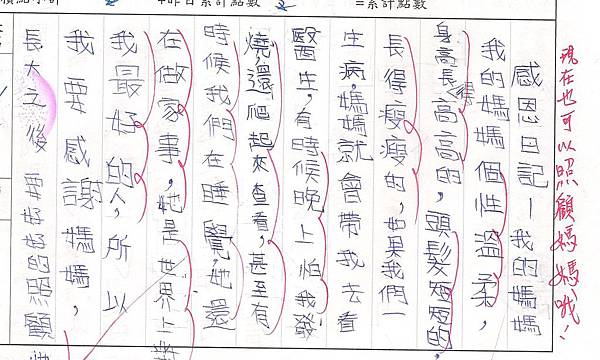 +昨日累計點數
=累計點數
現在也可以照顧媽媽哦!
感恩日記—我的媽媽
我的媽媽個性溫柔,
身高長得高高的,頭髮短短的,
長得瘦瘦的,如果我們一
生病,媽媽就會帶我去看
醫生,有時候晚上怕我發
燒,還爬起來查看,甚至有
時候我們在睡覺,她還
在做家事,她是世界上對
我最好的人,所以
我要感謝媽媽,
長大之後要好好的照顧